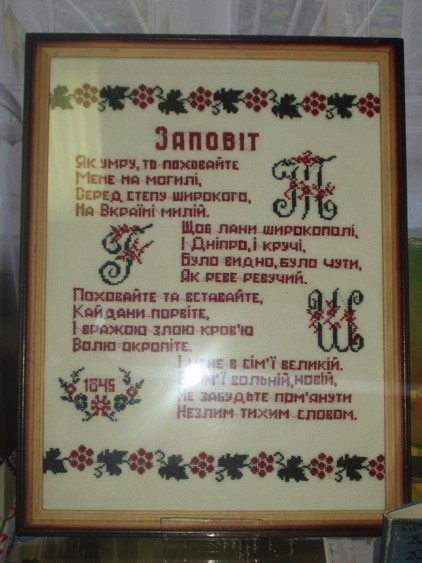 ЗАПОВІТ
ЯК УМРУ, ТО ПОХОВАЙТЕ
МЕНЕ НА МОГИЛІ,
СЕРЕД СТЕПУ ШИРОКОГО,
НА ВКРАЇНІ МИЛІЙ.
Т
ЩОБ ЛАНИ ШИРОКОПОЛІ,
І ДНІПРО, І КРУЧІ,
БУЛО ВИДНО, БУЛО ЧУТИ,
ЯК РЕВЕ РЕВУЧИЙ.
Г
ПОХОВАЙТЕ ТА ВСТАВАЙТЕ,
КАЙДАНИ ПОРВІТЕ,
І ВРАЖОЮ ЗЛОЮ КРОВ'Ю
ВОЛЮ ОКРОПІТЕ.
Ш
І МЕНЕ В СІМ'Ї ВЕЛИКІЙ.
В СІМ'Ї ВОЛЬНІЙ, НОВІЙ,
НЕ ЗАБУДЬТЕ ПОМ'ЯНУТИ
НЕЗЛИМ ТИХИМ СЛОВОМ.
1845